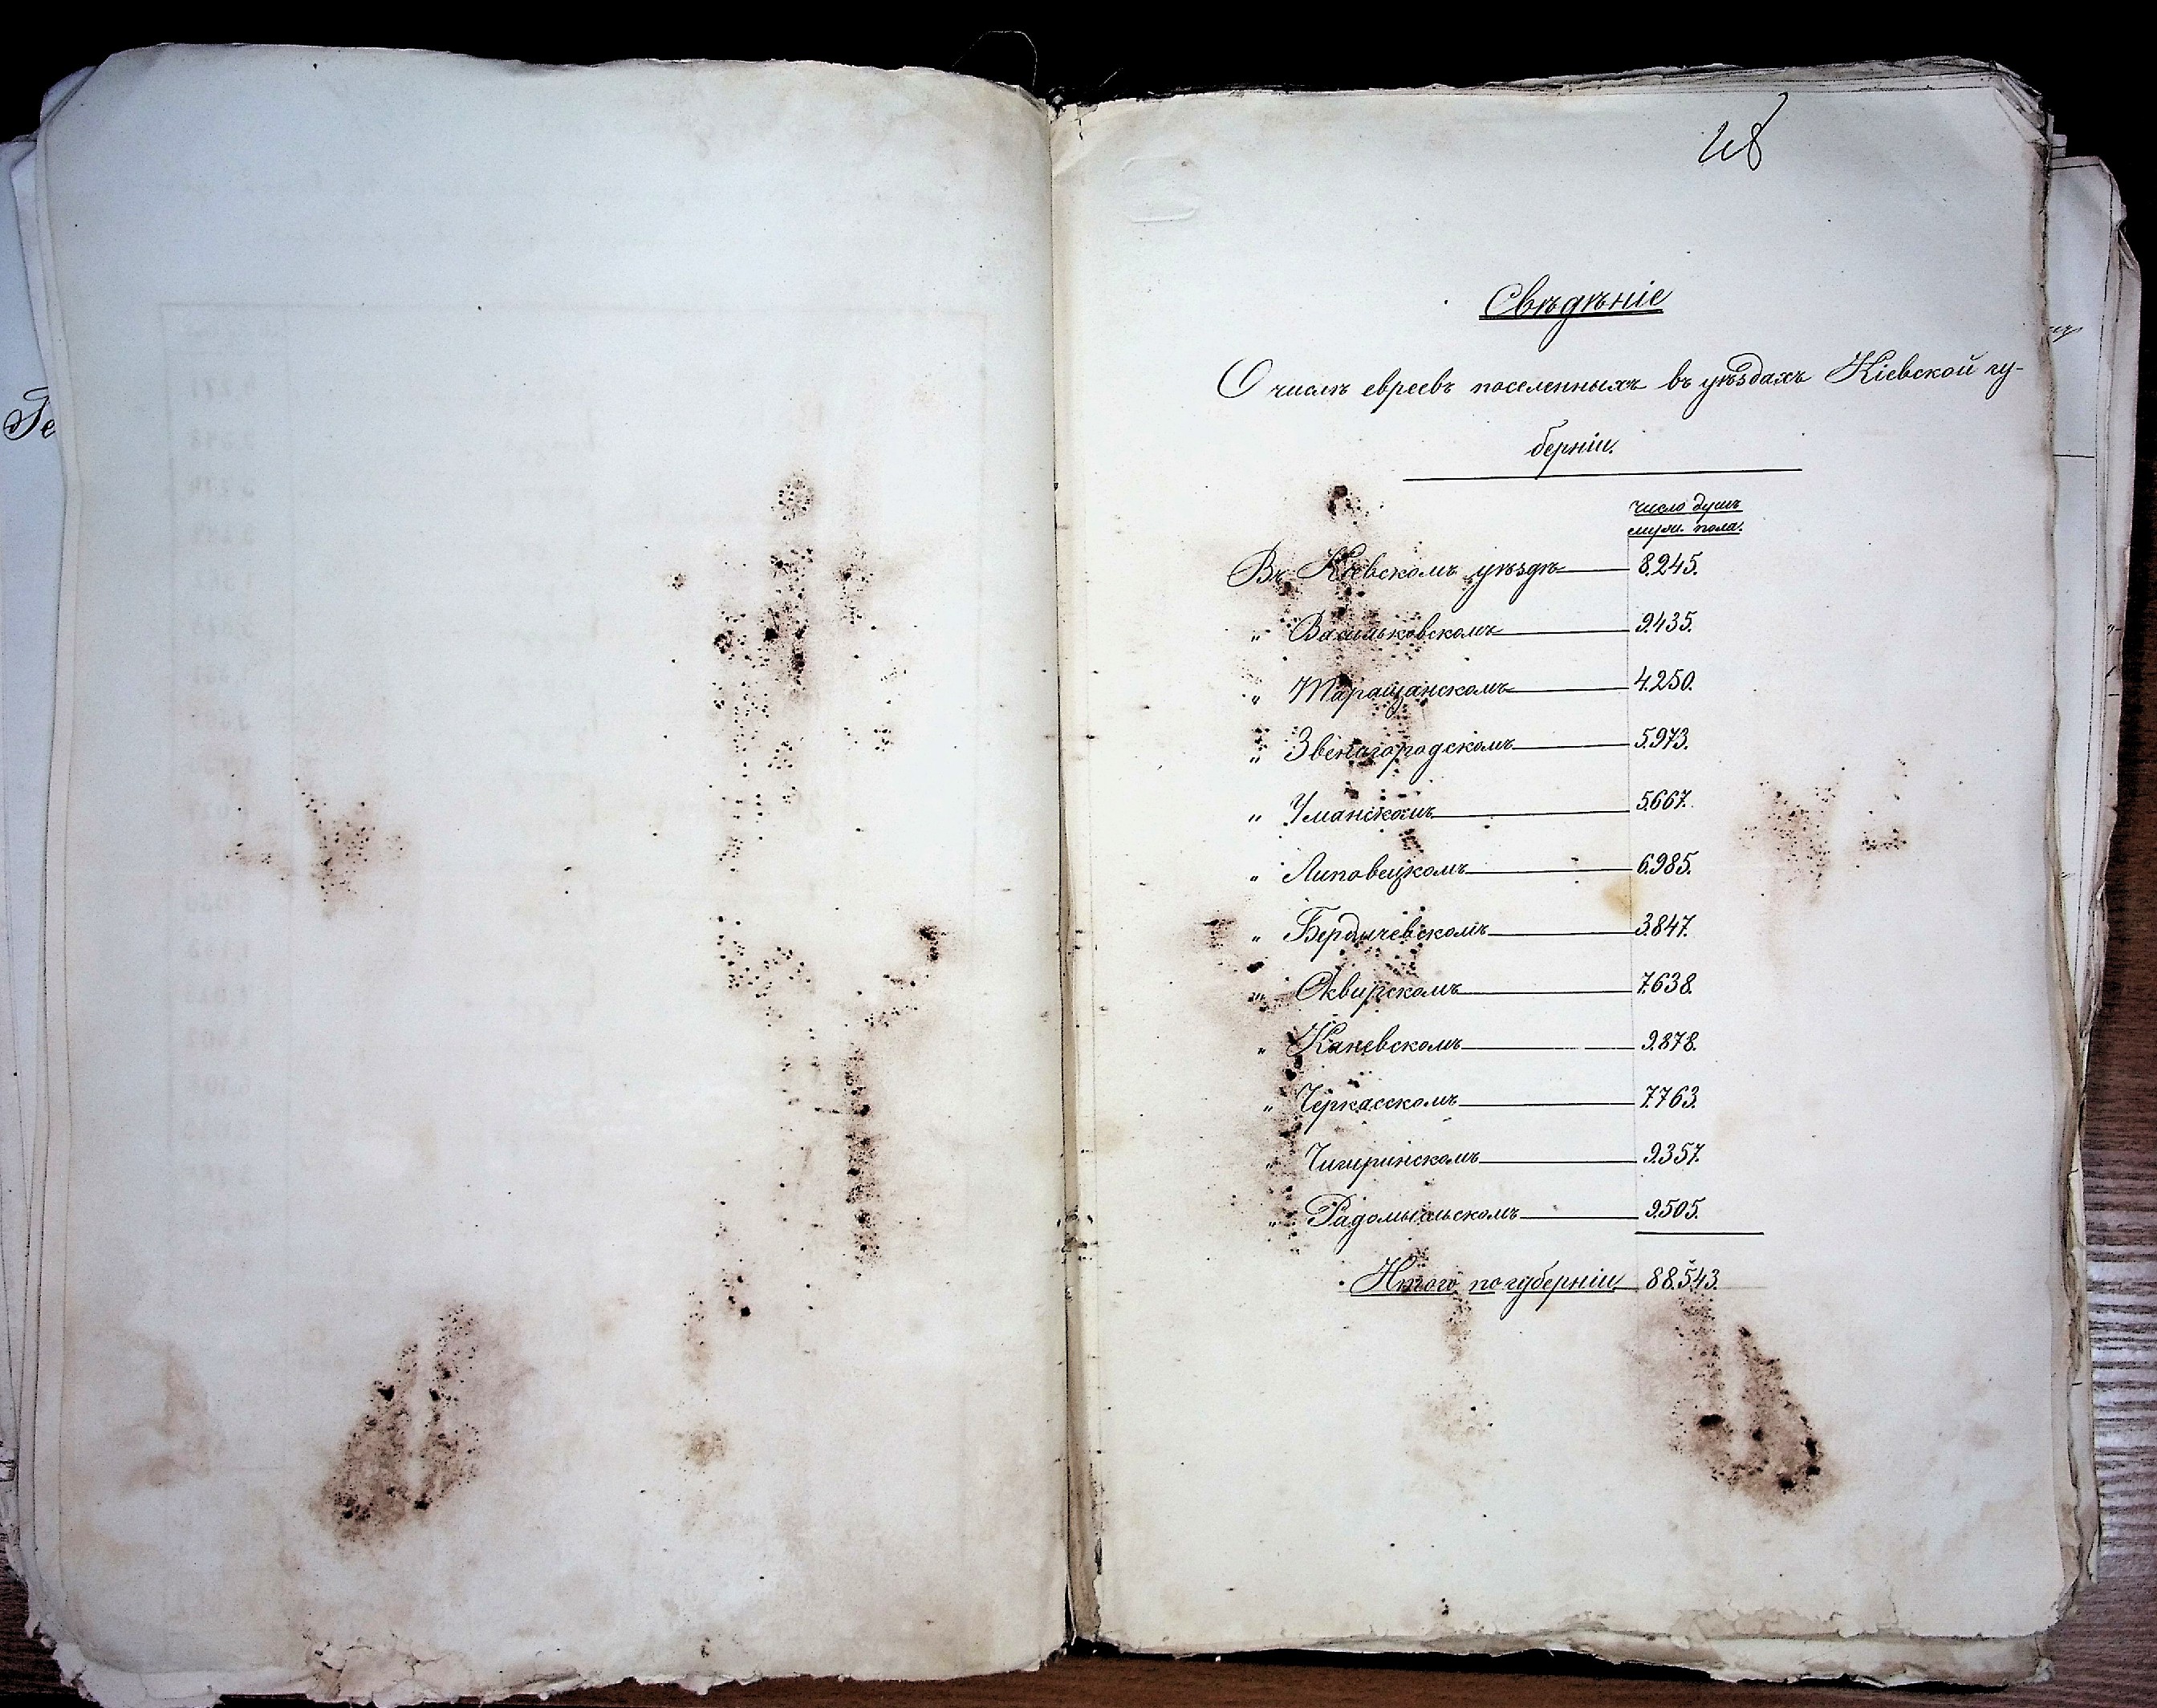 Те
48
Свѣдѣніе
О числѣ евреевъ поселенныхъ въ уѣздахъ Кіевской гу-
берніи.
число душъ
муж. пола.
Въ Кіевскомъ уѣздѣ 8.245.
„ Васильковскомъ 9.435.
„ Таращанскомъ 4.250.
„ Звенигородскомъ 5.973.
„ Уманскомъ 5.667.
„ Липовецкомъ 6.985.
„ Бердичевскомъ 3.847.
„ Сквирскомъ 7.638.
„ Каневскомъ 9.878.
„ Черкасскомъ 7.763.
„ Чигиринскомъ 9.357.
„ Радомысльскомъ 9.505.
Итого по губерніи 88.543.